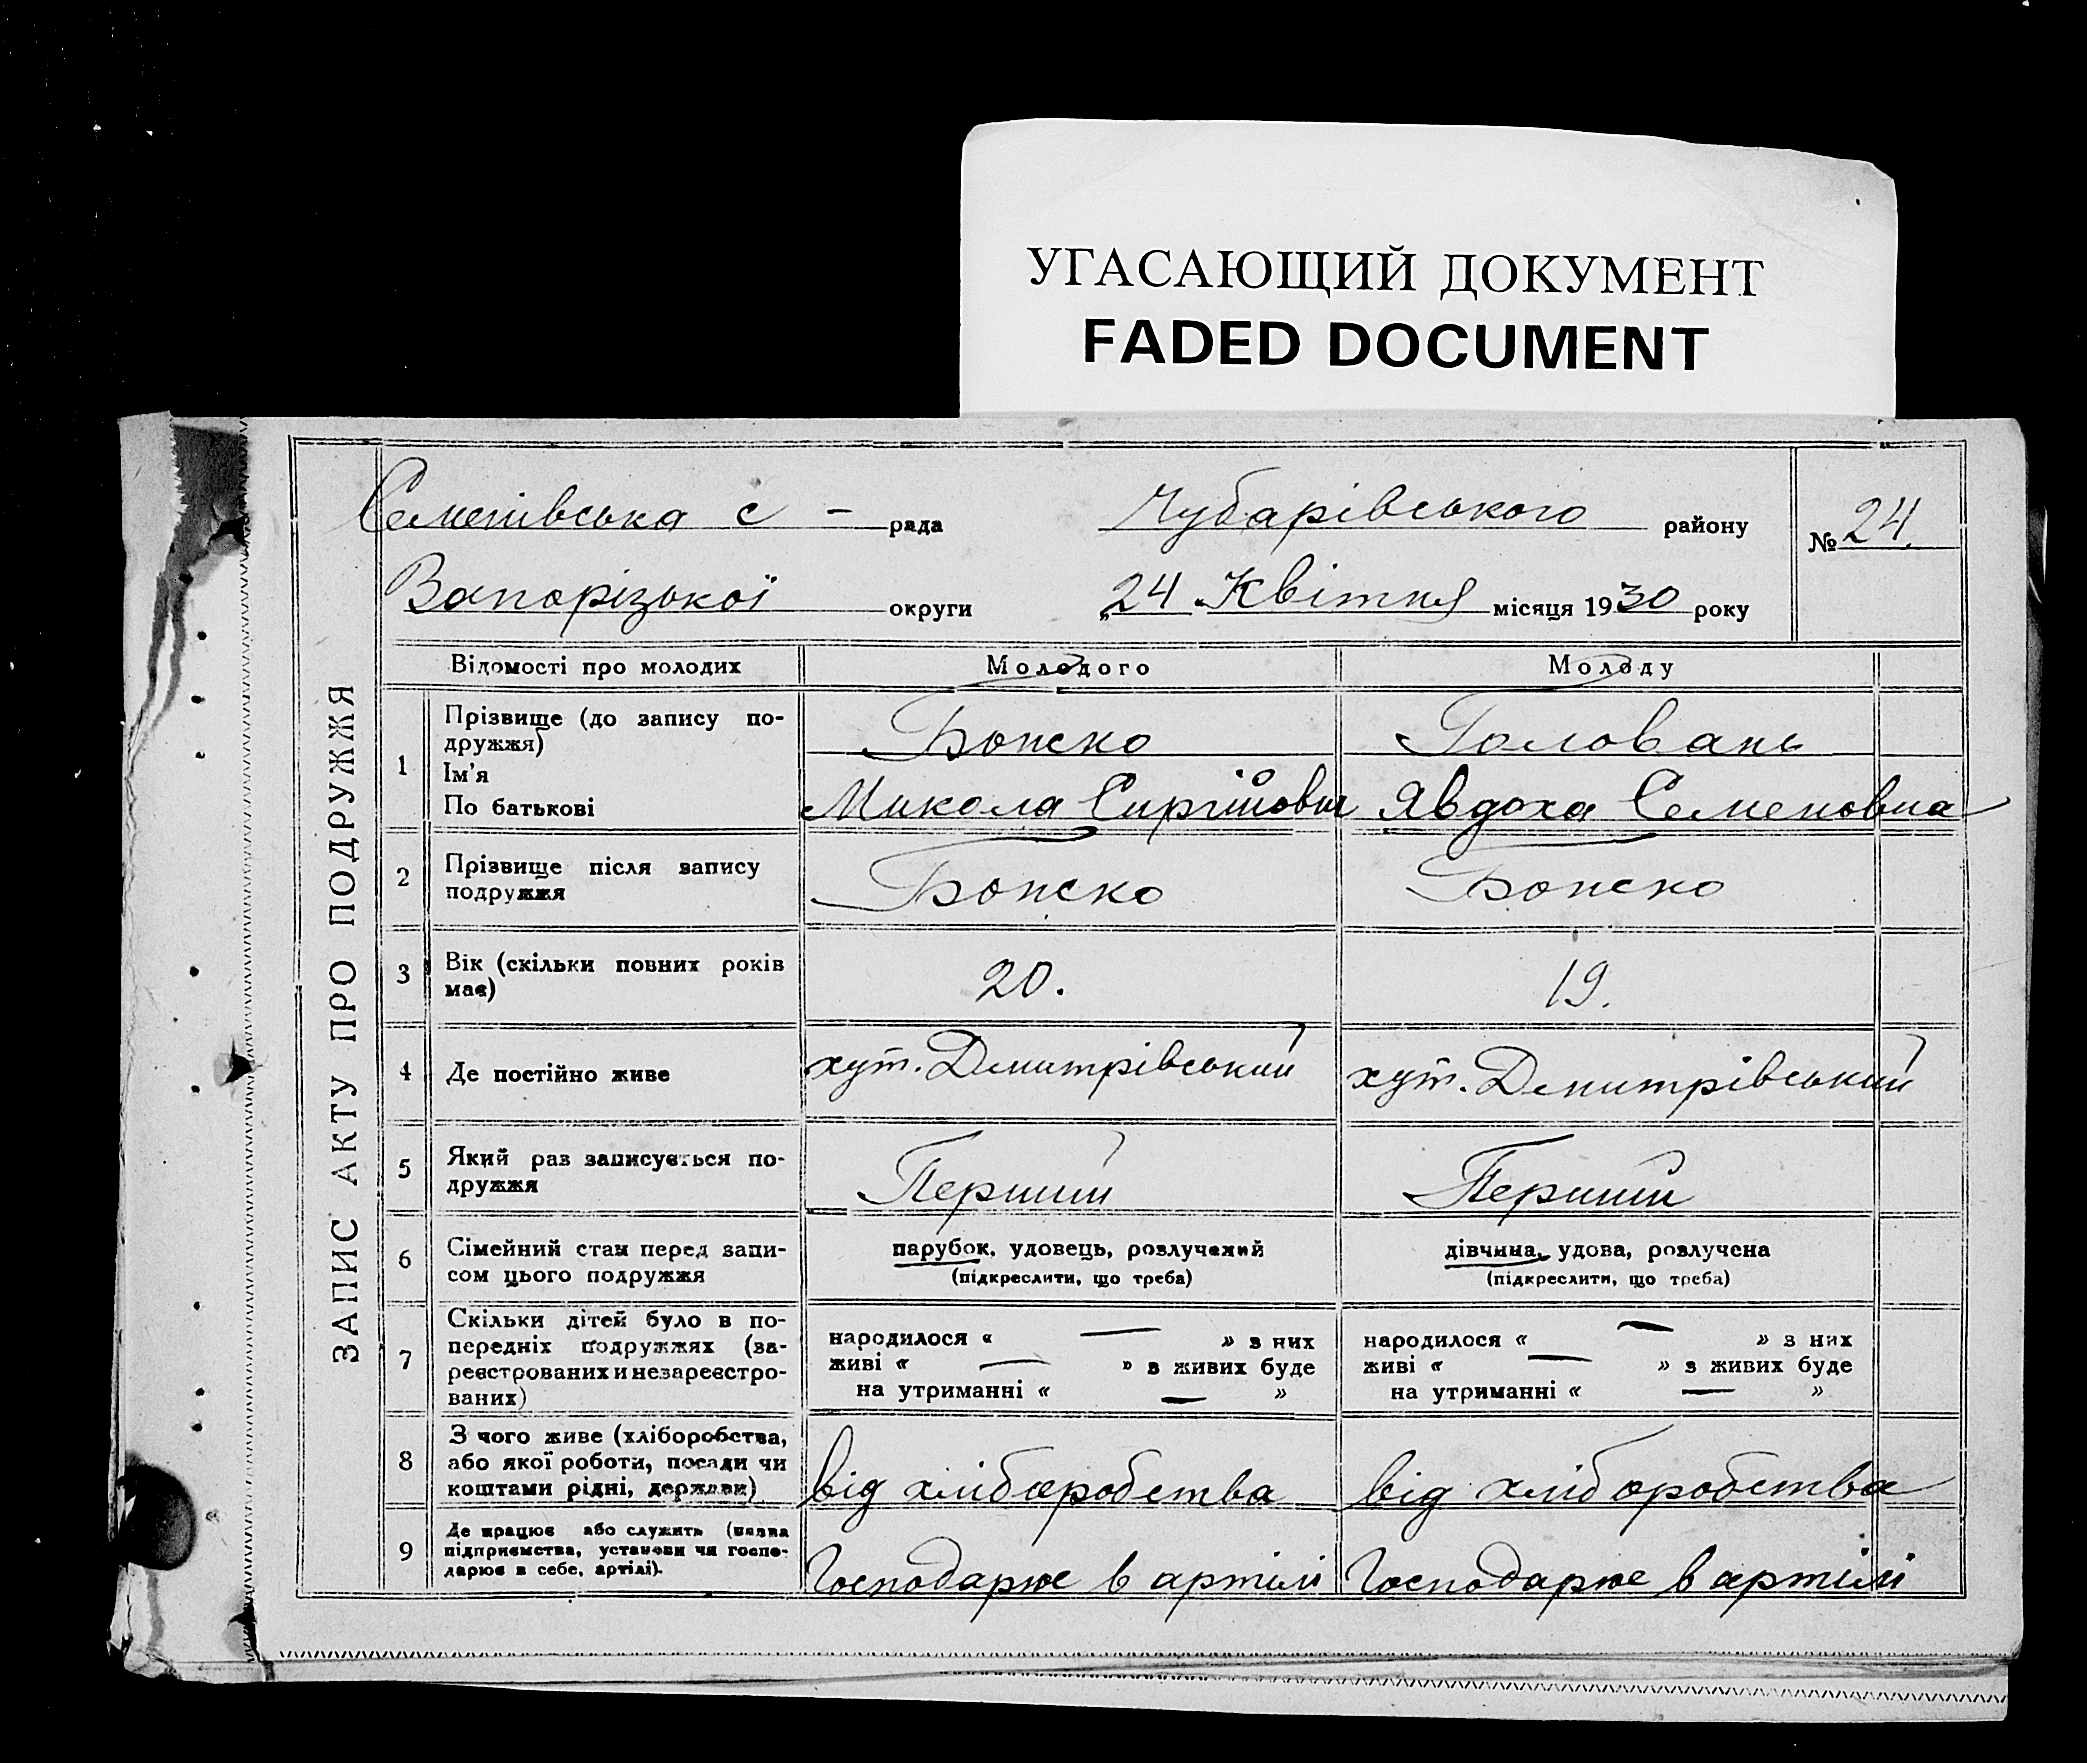 УГАСАЮЩИЙ ДОКУМЕНТ
FADED DOCUMENT
ЗАПИС АКТУ ПРО ПОДРУЖЖЯ
Семенівська с - рада Чубарівського району № 24.
Запорізької округи „24 Квітня місяця 1930 року
Відомості про молодих Молодого Молоду
1 Прізвище (до запису по-
дружжя) Бопско Головань
Ім'я
По батькові Микола Сиргійович Явдоха Семеновна
2 Прізвище після запису
подружжя Бопско Бопско
3 Вік (скільки повних років
має) 20. 19.
4 Де постійно живе хут. Дмитрівський хут. Дмитрівський
5 Який раз записується по-
дружжя Перший Перший
6 Сімейний стан перед запи-
сом цього подружжя
парубок, удовець, розлучений дівчина, удова, розлучена
(підкреслити, що треба) (підкреслити, що треба)
7 Скільки дітей було в по-
передніх подружжях (за-
реєстрованих и незареєстро-
ваних)
народилося « — » з них народилося « — » з них
живі « — » з живих буде живі « — » з живих буде
на утриманні « — » на утриманні « — »
8 З чого живе (хліборобства,
або якої роботи, посади чи
коштами рідні, держави) від хліборобства від хліборобства
9 Де працює або служить (назва
підприємства, установи чи госпо-
дарює в себе, артілі). Господарює в артілі Господарює в артілі